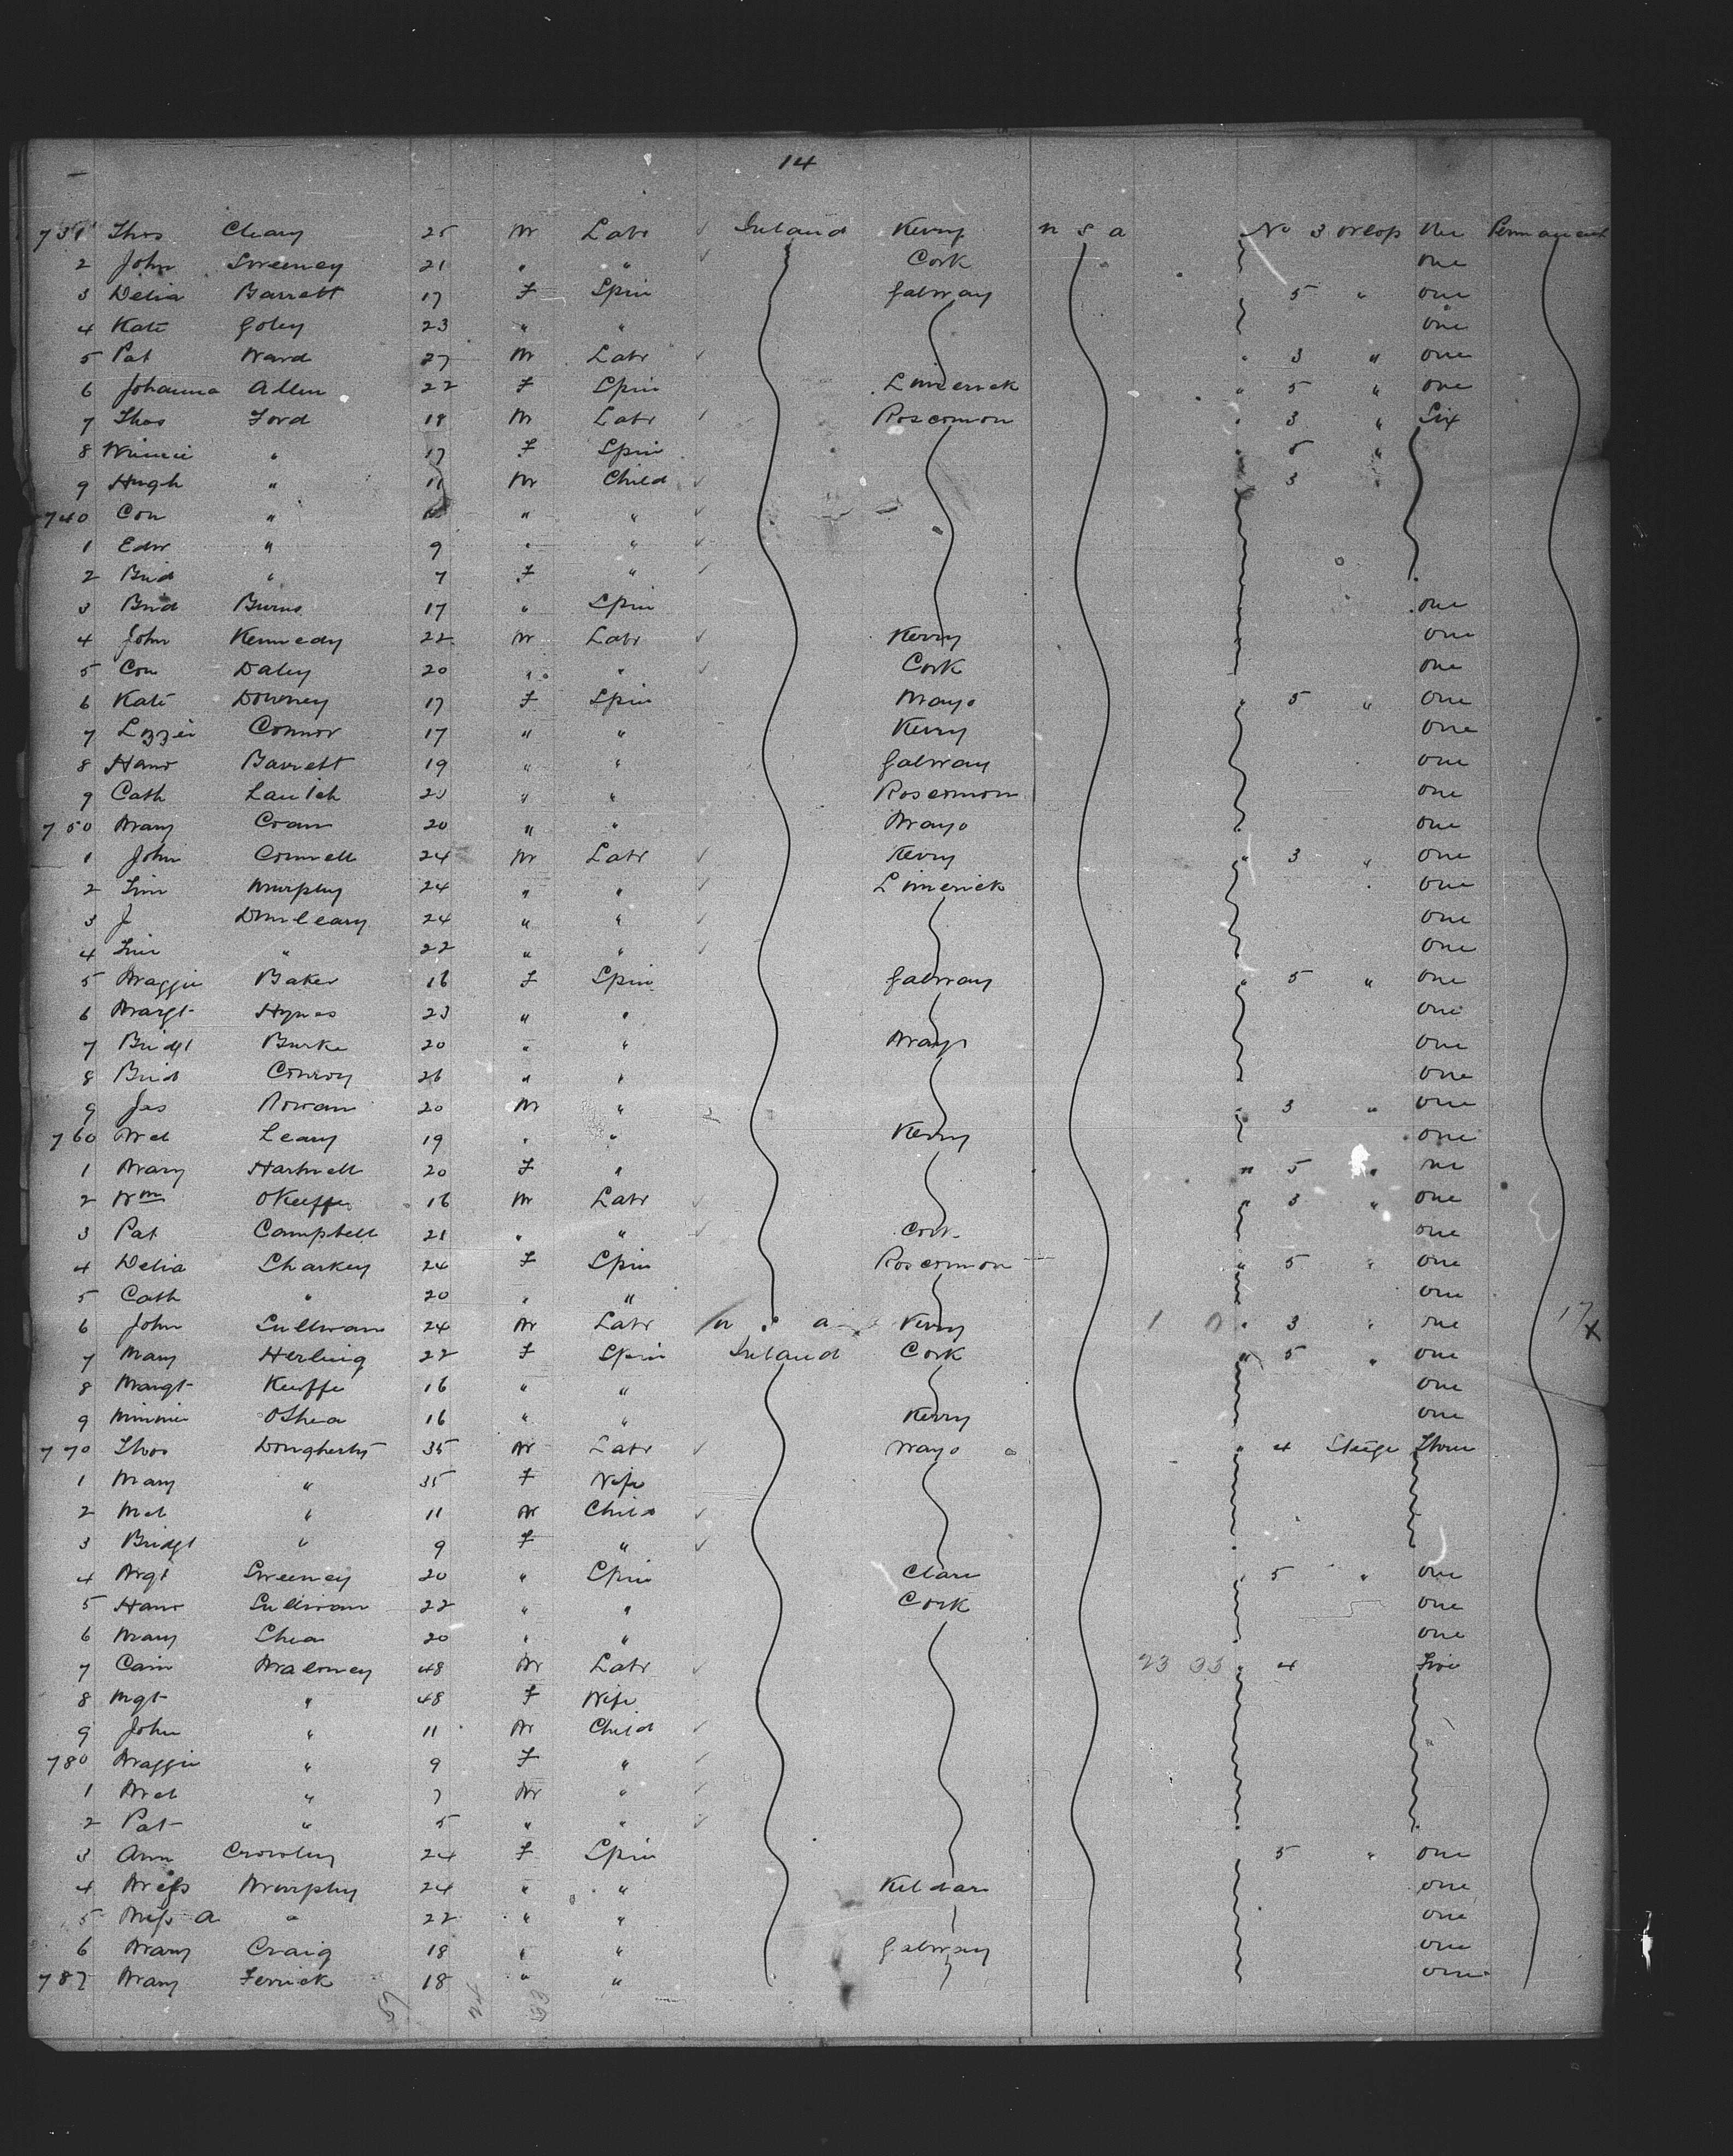 14
731 Thos Cleary 25 M Labr ✓ Ireland Kerry U S A No 3 Orlop One Permanent
2 John Sweeney 21 " " ✓ Cork one
3 Delia Barrett 17 F Spin Galway 5 " one
4 Kate Foley 23 " " one
5 Pat Ward 27 M Labr ✓ " 3 " one
6 Johanna Allen 22 F Spin Limerick " 5 " one
7 Thos Ford 18 M Labr ✓ Roscomon " 3 " Six
8 Winnie " 17 F Spin " 5 "
9 Hugh " 11 M Child ✓ " 3 "
740 Con " " " ✓
1 Edw " 9 " " ✓
2 Brid " 7 F " ✓
3 Brid Burns 17 " Spin one
4 John Kennedy 22 M Labr ✓ Kerry one
5 Con Daley 20 " " ✓ Cork one
6 Kate Downey 17 F Spin Mayo " 5 " one
7 Lizzie Connor 17 " " Kerry one
8 Hanr Barrett 19 " " Galway one
9 Cath 23 " " Roscomon one
750 Mary 20 " " Mayo one
1 John Connell 24 M Labr ✓ Kerry " 3 " one
2 Tim Murphy 24 " " ✓ Limerick one
3 J Dunleary 24 " " ✓ one
4 Tim " 22 " " ✓ one
5 Maggie Baker 16 F Spin Galway " 5 " one
6 Margt Hynes 23 " " one
7 Bridgt Burke 20 " " Mayo one
8 Brid Conroy 26 " " one
9 Jas Rowan 20 M " " 3 " one
760 Mcl Leary 19 " " Kerry one
1 Mary Hartnell 20 F " " 5 " one
2 Wm OKeeffe 16 M Labr ✓ " 3 " one
3 Pat Campbell 21 " " ✓ Cork one
4 Delia Sharkey 24 F Spin Roscomon " 5 " one
5 Cath " 20 " " one
6 John Sullivan 24 M Labr U S A Kerry 1 0 " 3 " one 17 x
7 Mary Herling 22 F Spin Ireland Cork " 5 " one
8 Margt Keeffe 16 " " one
9 Minnie OShea 16 " " Kerry one
770 Thos Dougherty 35 M Labr ✓ Mayo " 4 Stege
1 Mary " 35 F Wife
2 Mcl " 11 M Child ✓
3 Bridgt " 9 F " ✓
4 Mrgt Sweeney 20 " Spin Clare " 5 " one
5 Hanr Sullivan 22 " " Cork one
6 Mary Shea 20 " " one
7 Maloney 48 M Labr ✓ 23 33 " 4
8 Mgt " 48 F Wife
9 John " 11 M Child ✓
780 Maggie " 9 F " ✓
1 Mcl " 7 M " ✓
2 Pat " 5 " " ✓
3 Ann Crowley 24 F Spin 5 " one
4 Murphy 24 " " Kildare one
5 Miss A " 22 " " one
6 Mary Craig 18 " " Galway one
787 Mary Ferrick 18 " " one